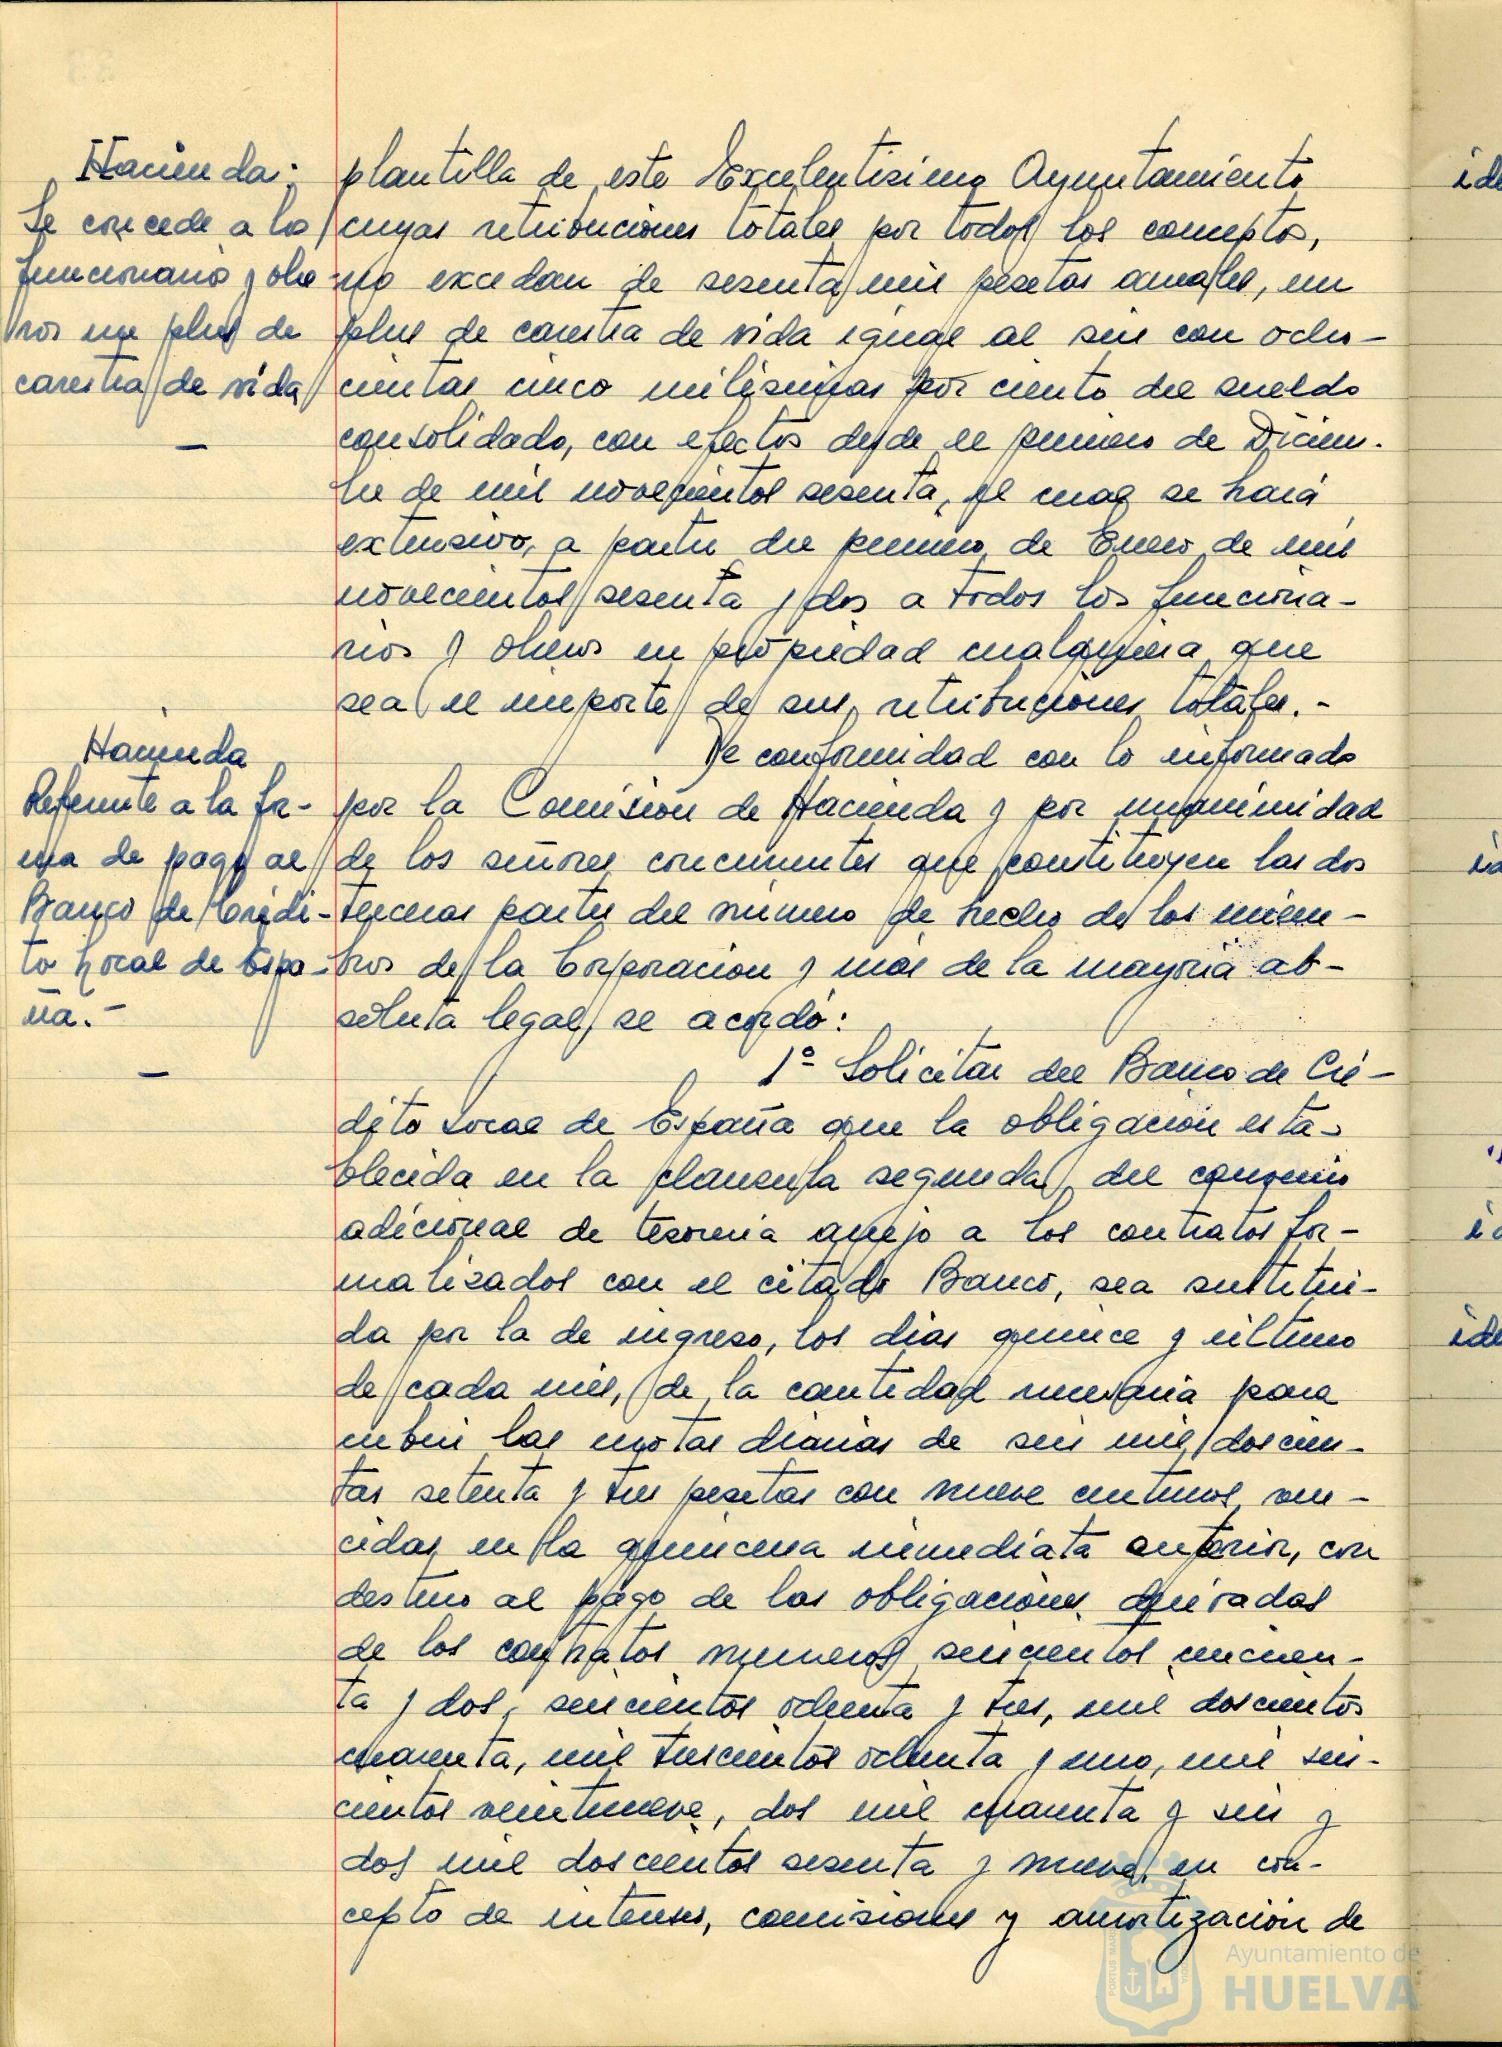 Hacienda:
Se concede a los
funcionarios y obre-
ros un plus de
carestia de vida
—
plantilla de este Excelentisimo Ayuntamiento
cuyas retribuciones totales por todos los conceptos,
no excedan de sesenta mil pesetas anuales, un
plus de carestia de vida igual al seis con ocho-
cientas cinco milésimas por ciento del sueldo
consolidado, con efectos desde el primero de Diciem-
bre de mil novecientos sesenta, el cual se hará
extensivo, a partir del primero de Enero de mil
novecientos sesenta y dos a todos los funciona-
rios y obreros en propiedad cualquiera que
sea el importe de sus retribuciones totales.-
Hacienda
Referente a la for-
ma de pago al
Banco de Crédi-
to Local de Espa-
ña.-
—
De conformidad con lo informado
por la Comisión de Hacienda y por unanimidad
de los señores concurrentes que constituyen las dos
terceras partes del número de hecho de los miem-
bros de la Corporacion y más de la mayoria ab-
soluta legal, se acordó:
1º Solicitar del Banco de Cré-
dito Local de España que la obligacion esta-
blecida en la clausula segunda del convenio
adicional de tesoreria anejo a los contratos for-
malizados con el citado Banco, sea sustitui-
da por la de ingreso, los dias quince y último
de cada mes, de la cantidad necesaria para
cubrir las cuotas diarias de seis mil doscien-
tas setenta y tres pesetas con nueve centimos, ven-
cidas en la quincena inmediata anterior, con
destino al pago de las obligaciones derivadas
de los contratos numeros seiscientos cincuen-
ta y dos, seiscientos ochenta y tres, mil doscientos
cuarenta, mil trescientos ochenta y uno, mil seis-
cientos veintinueve, dos mil cuarenta y seis y
dos mil doscientos sesenta y nueve, en con-
cepto de intereses, comisiones y amortización de
Ayuntamiento de
HUELVA